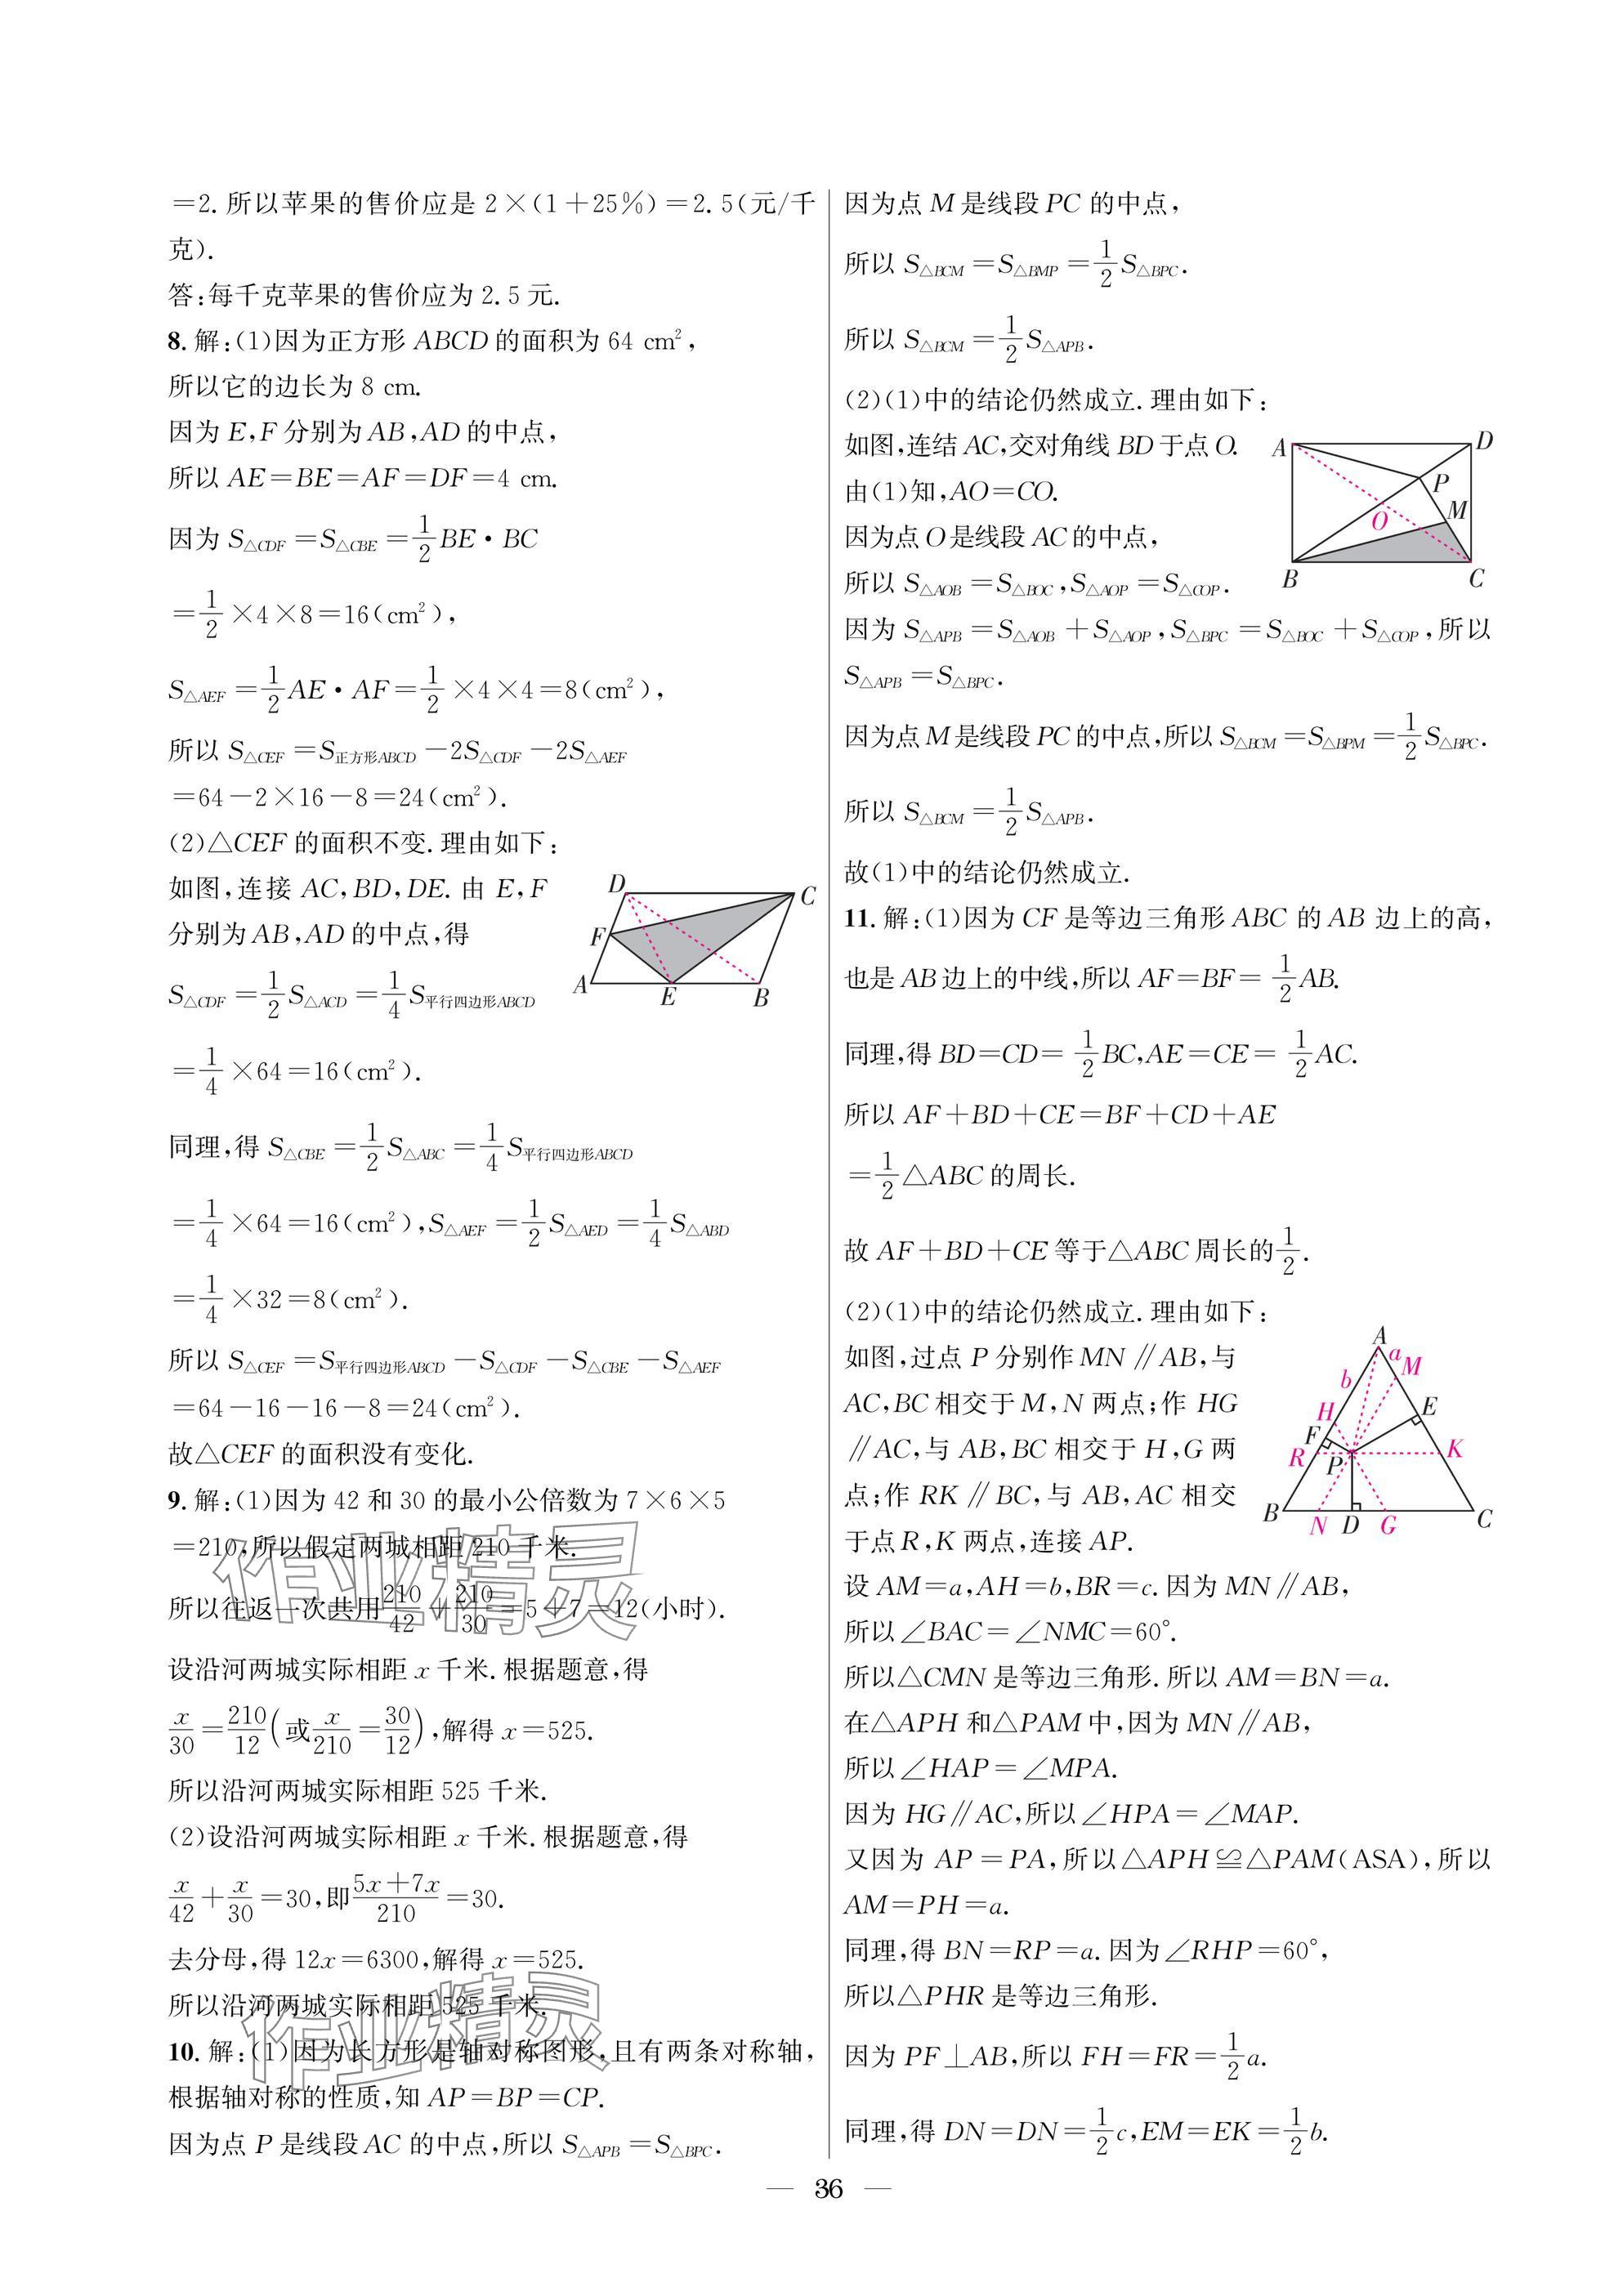 =2. 所以苹果的售价应是 2×(1+25%)=2.5(元/千
克).
答:每千克苹果的售价应为 2.5 元.
8. 解:(1)因为正方形 ABCD 的面积为 64 cm²,
所以它的边长为 8 cm.
因为 E,F 分别为 AB,AD 的中点,
所以 AE=BE=AF=DF=4 cm.
因为 S△CDF=S△CBE=1/2 BE·BC
=1/2×4×8=16(cm²),
S△AEF=1/2 AE·AF=1/2×4×4=8(cm²),
所以 S△CEF=S正方形ABCD-2S△CDF-2S△AEF
=64-2×16-8=24(cm²).
(2)△CEF 的面积不变. 理由如下:
如图,连接 AC,BD,DE. 由 E,F
分别为 AB,AD 的中点,得
S△CDF=1/2 S△ACD=1/4 S平行四边形ABCD
=1/4×64=16(cm²).
同理,得 S△CBE=1/2 S△ABC=1/4 S平行四边形ABCD
=1/4×64=16(cm²),S△AEF=1/2 S△AED=1/4 S△ABD
=1/4×32=8(cm²).
所以 S△CEF=S平行四边形ABCD-S△CDF-S△CBE-S△AEF
=64-16-16-8=24(cm²).
故△CEF 的面积没有变化.
D
C
F
A
E
B
9. 解:(1)因为 42 和 30 的最小公倍数为 7×6×5
=210,所以假定两城相距 210 千米.
所以往返一次共用 210/42+210/30=5+7=12(小时).
设沿河两城实际相距 x 千米. 根据题意,得
x/30=210/12(或 x/210=30/12),解得 x=525.
所以沿河两城实际相距 525 千米.
(2)设沿河两城实际相距 x 千米. 根据题意,得
x/42+x/30=30,即 5x+7x/210=30.
去分母,得 12x=6300,解得 x=525.
所以沿河两城实际相距 525 千米.
10. 解:(1)因为长方形是轴对称图形,且有两条对称轴,
根据轴对称的性质,知 AP=BP=CP.
因为点 P 是线段 AC 的中点,所以 S△APB=S△BPC.
作业精灵
作业精灵
因为点 M 是线段 PC 的中点,
所以 S△BCM=S△BMP=1/2 S△BPC.
所以 S△BCM=1/2 S△APB.
(2)(1)中的结论仍然成立. 理由如下:
如图,连结 AC,交对角线 BD 于点 O.
由(1)知,AO=CO.
因为点 O 是线段 AC 的中点,
所以 S△AOB=S△BOC,S△AOP=S△COP.
A
D
P
M
O
B
C
因为 S△APB=S△AOB+S△AOP,S△BPC=S△BOC+S△COP,所以
S△APB=S△BPC.
因为点 M 是线段 PC 的中点,所以 S△BCM=S△BPM=1/2 S△BPC.
所以 S△BCM=1/2 S△APB.
故(1)中的结论仍然成立.
11. 解:(1)因为 CF 是等边三角形 ABC 的 AB 边上的高,
也是 AB 边上的中线,所以 AF=BF=1/2 AB.
同理,得 BD=CD=1/2 BC,AE=CE=1/2 AC.
所以 AF+BD+CE=BF+CD+AE
=1/2 △ABC 的周长.
故 AF+BD+CE 等于△ABC 周长的 1/2.
(2)(1)中的结论仍然成立. 理由如下:
如图,过点 P 分别作 MN∥AB,与
AC,BC 相交于 M,N 两点;作 HG
∥AC,与 AB,BC 相交于 H,G 两
点;作 RK∥BC,与 AB,AC 相交
于点 R,K 两点,连接 AP.
A
a
M
b
H
E
F
R
P
K
B
N
D
G
C
设 AM=a,AH=b,BR=c. 因为 MN∥AB,
所以∠BAC=∠NMC=60°.
所以△CMN 是等边三角形. 所以 AM=BN=a.
在△APH 和△PAM 中,因为 MN∥AB,
所以∠HAP=∠MPA.
因为 HG∥AC,所以∠HPA=∠MAP.
又因为 AP=PA,所以△APH≌△PAM(ASA),所以
AM=PH=a.
同理,得 BN=RP=a. 因为∠RHP=60°,
所以△PHR 是等边三角形.
因为 PF⊥AB,所以 FH=FR=1/2 a.
同理,得 DN=DN=1/2 c,EM=EK=1/2 b.
— 36 —